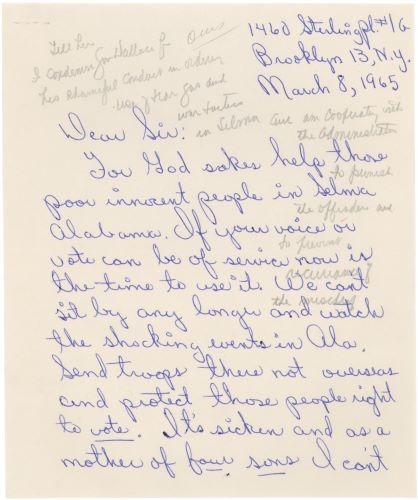 1460 Sterling Pl. #1G
Brooklyn 13, N.Y.
March 8, 1965
Tell her
I condemn Gov Wallace for
his shameful conduct in ordering
use of tear gas and
in Selma am cooperating with
the Administration
to punish
the offenders and
to prevent
recurrence of
the
Dear Sir:
For God sakes help those
poor innocent people in Selma
Alabama. If your voice or
vote can be of service now is
the time to use it. We can't
sit by any longer and watch
the shocking events in Ala.
Send troops there not overseas
and protect those people right
to vote. It's sicken and as a
mother of four sons I can't